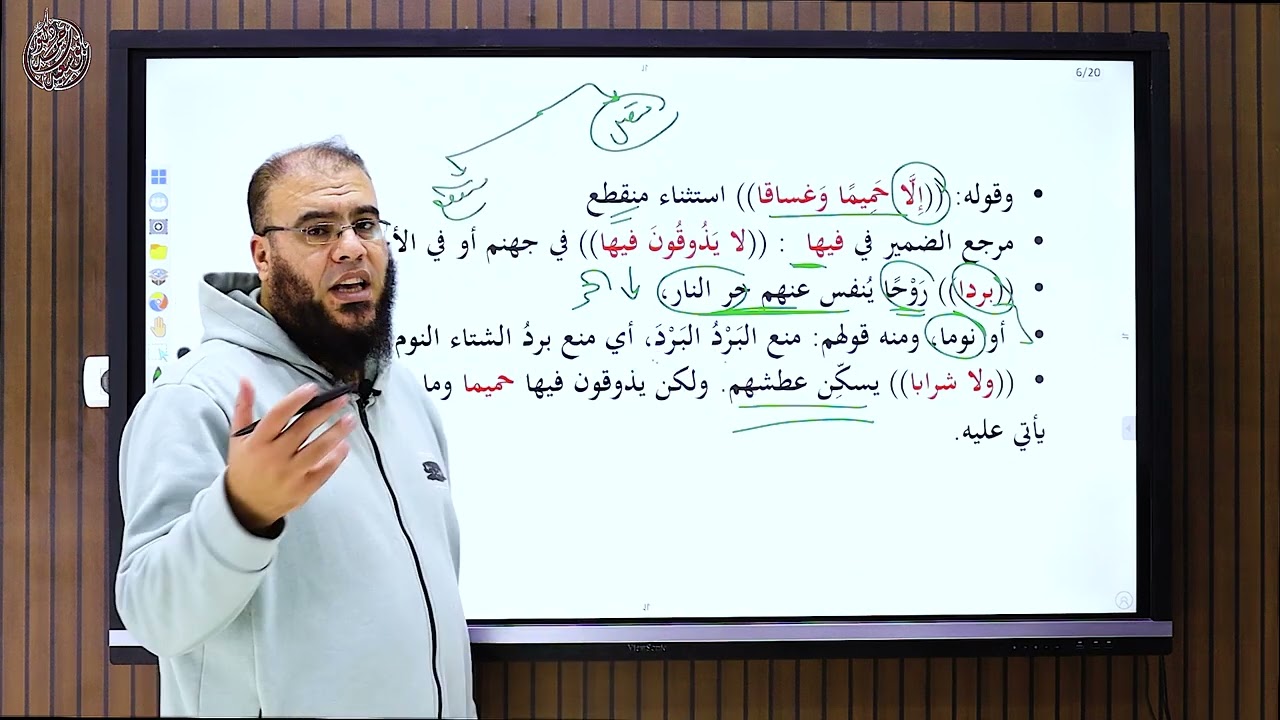 6/20
متصل
منقطع
• وقوله: ((إِلَّا حَمِيمًا وَغساقا)) استثناء منقطع
• مرجع الضمير في فيها : ((لا يَذُوقُونَ فيها)) في جهنم أو في
• ((بردا)) رَوْحًا يُنفس عنهم حر النار،
• أو نوما، ومنه قولهم: منع البَرْدُ البَرْدَ، أي منع بردُ الشتاء النوم
• ((ولا شرابا)) يسكّن عطشهم. ولكن يذوقون فيها حميما وما
يأتي عليه.
ViewSonic